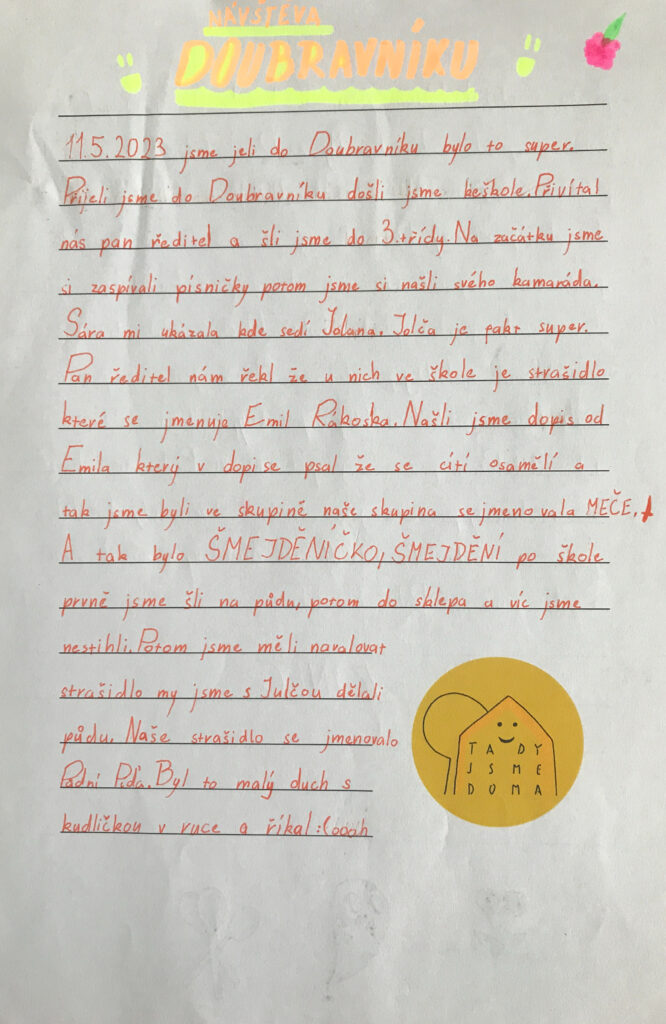 NÁVŠTĚVA
DOUBRAVNÍKU
11.5.2023 jsme jeli do Doubravníku bylo to super.
Přijeli jsme do Doubravníku došli jsme keškole. Přivítal
nás pan ředitel a šli jsme do 3. třídy. Na začátku jsme
si zaspívali písničky potom jsme si našli svého kamaráda.
Sára mi ukázala kde sedí Jolana. Jolča je fakt super.
Pan ředitel nám řekl že u nich ve škole je strašidlo
které se jmenuje Emil Rákoska. Našli jsme dopis od
Emila který v dopise psal že se cítí osamělí a
tak jsme byli ve skupině naše skupina se jmenovala MEČE.
A tak bylo ŠMEJDĚNÍČKO, ŠMEJDĚNÍ po škole
prvně jsme šli na půdu, potom do sklepa a víc jsme
nestihli. Potom jsme měli navalovat
strašidlo my jsme s Julčou dělali
půdu. Naše strašidlo se jmenovalo
Půdní Píďa. Byl to malý duch s
kudličkou v ruce a říkal :(ooooh
TADY
JSME
DOMA